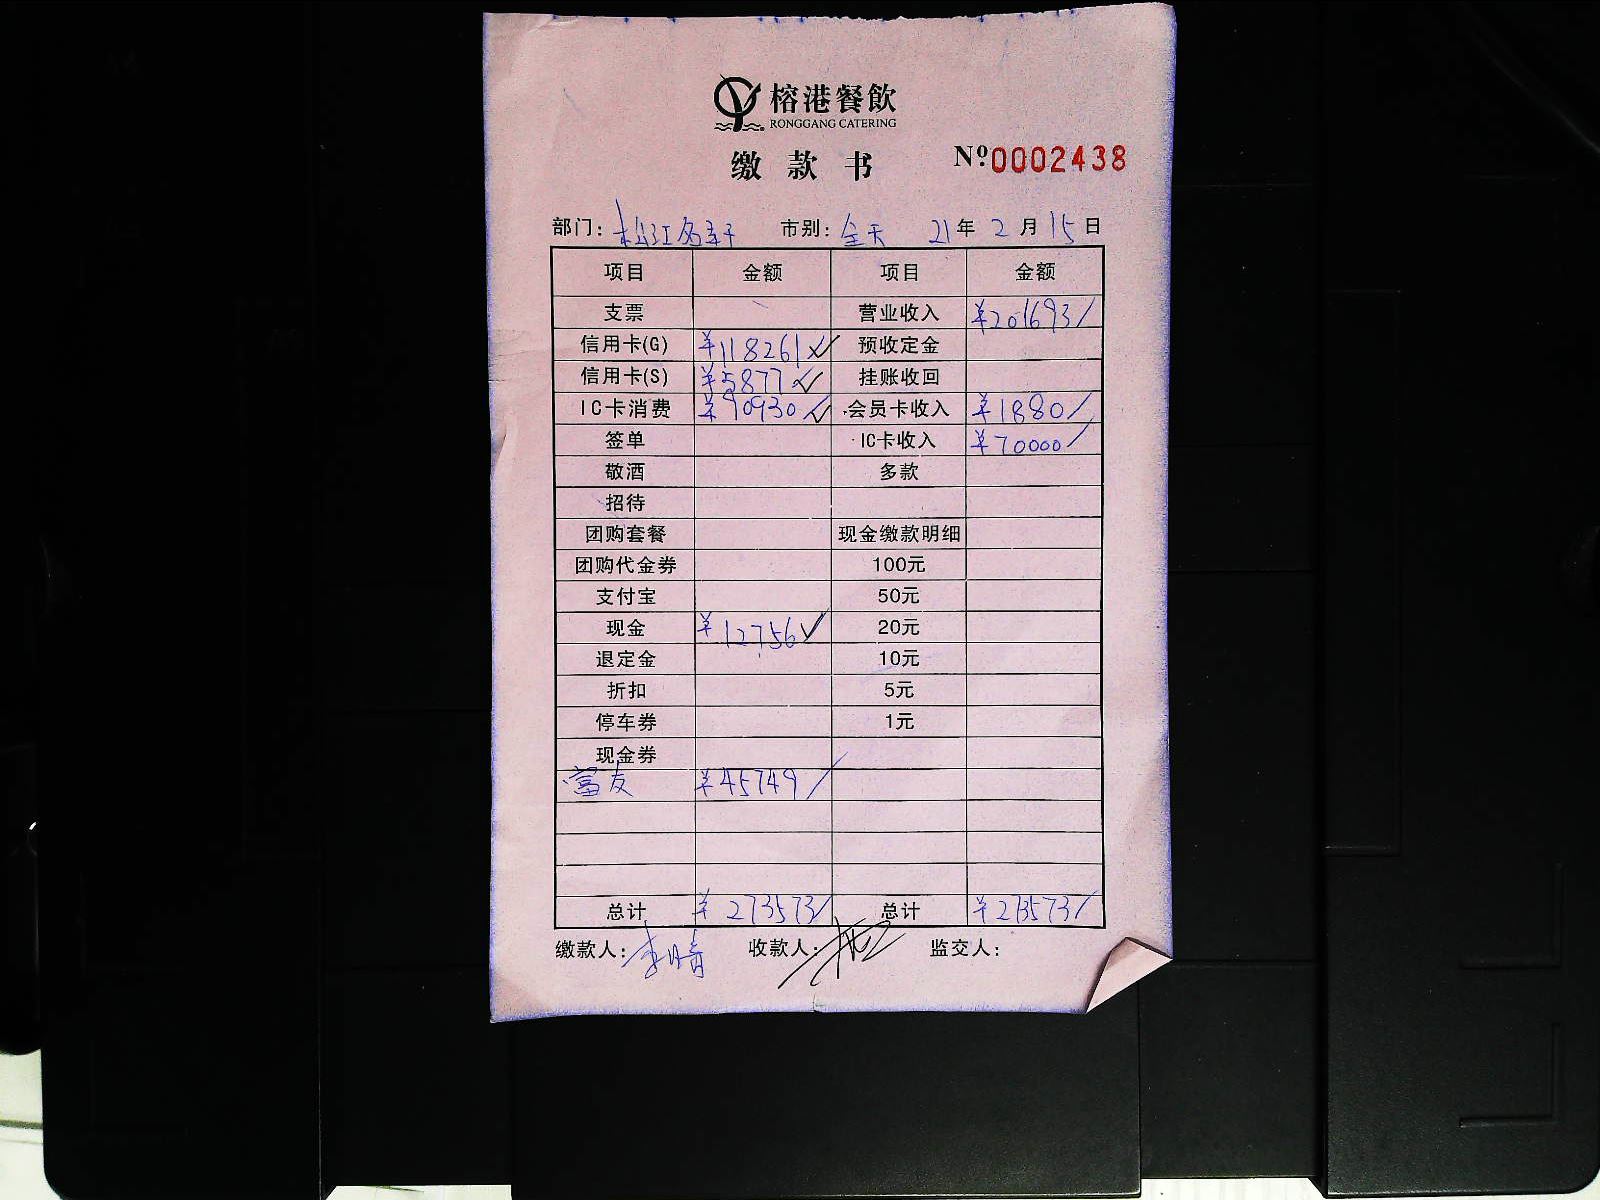 榕港餐飲
RONGGANG CATERING
缴款书 Nº0002438
部门：松江 市别：全天 21年2月15日
项目 金额 项目 金额
支票 营业收入 ¥201693/
信用卡(G) ¥118261✓ 预收定金
信用卡(S) ¥5877✓ 挂账收回
IC卡消费 ¥90930✓ 会员卡收入 ¥1880/
签单 IC卡收入 ¥70000/
敬酒 多款
招待
团购套餐 现金缴款明细
团购代金券 100元
支付宝 50元
现金 ¥12756✓ 20元
退定金 10元
折扣 5元
停车券 1元
现金券
富友 ¥45749/
总计 ¥273573/ 总计 ¥273573/
缴款人：李晴 收款人： 监交人：